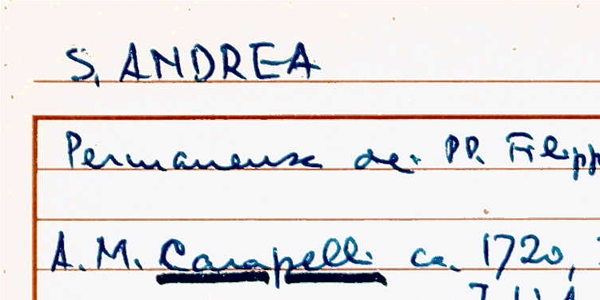 S. ANDREA
Permanenze dei PP. Filipp
A.M. Carapelli ca. 1720,